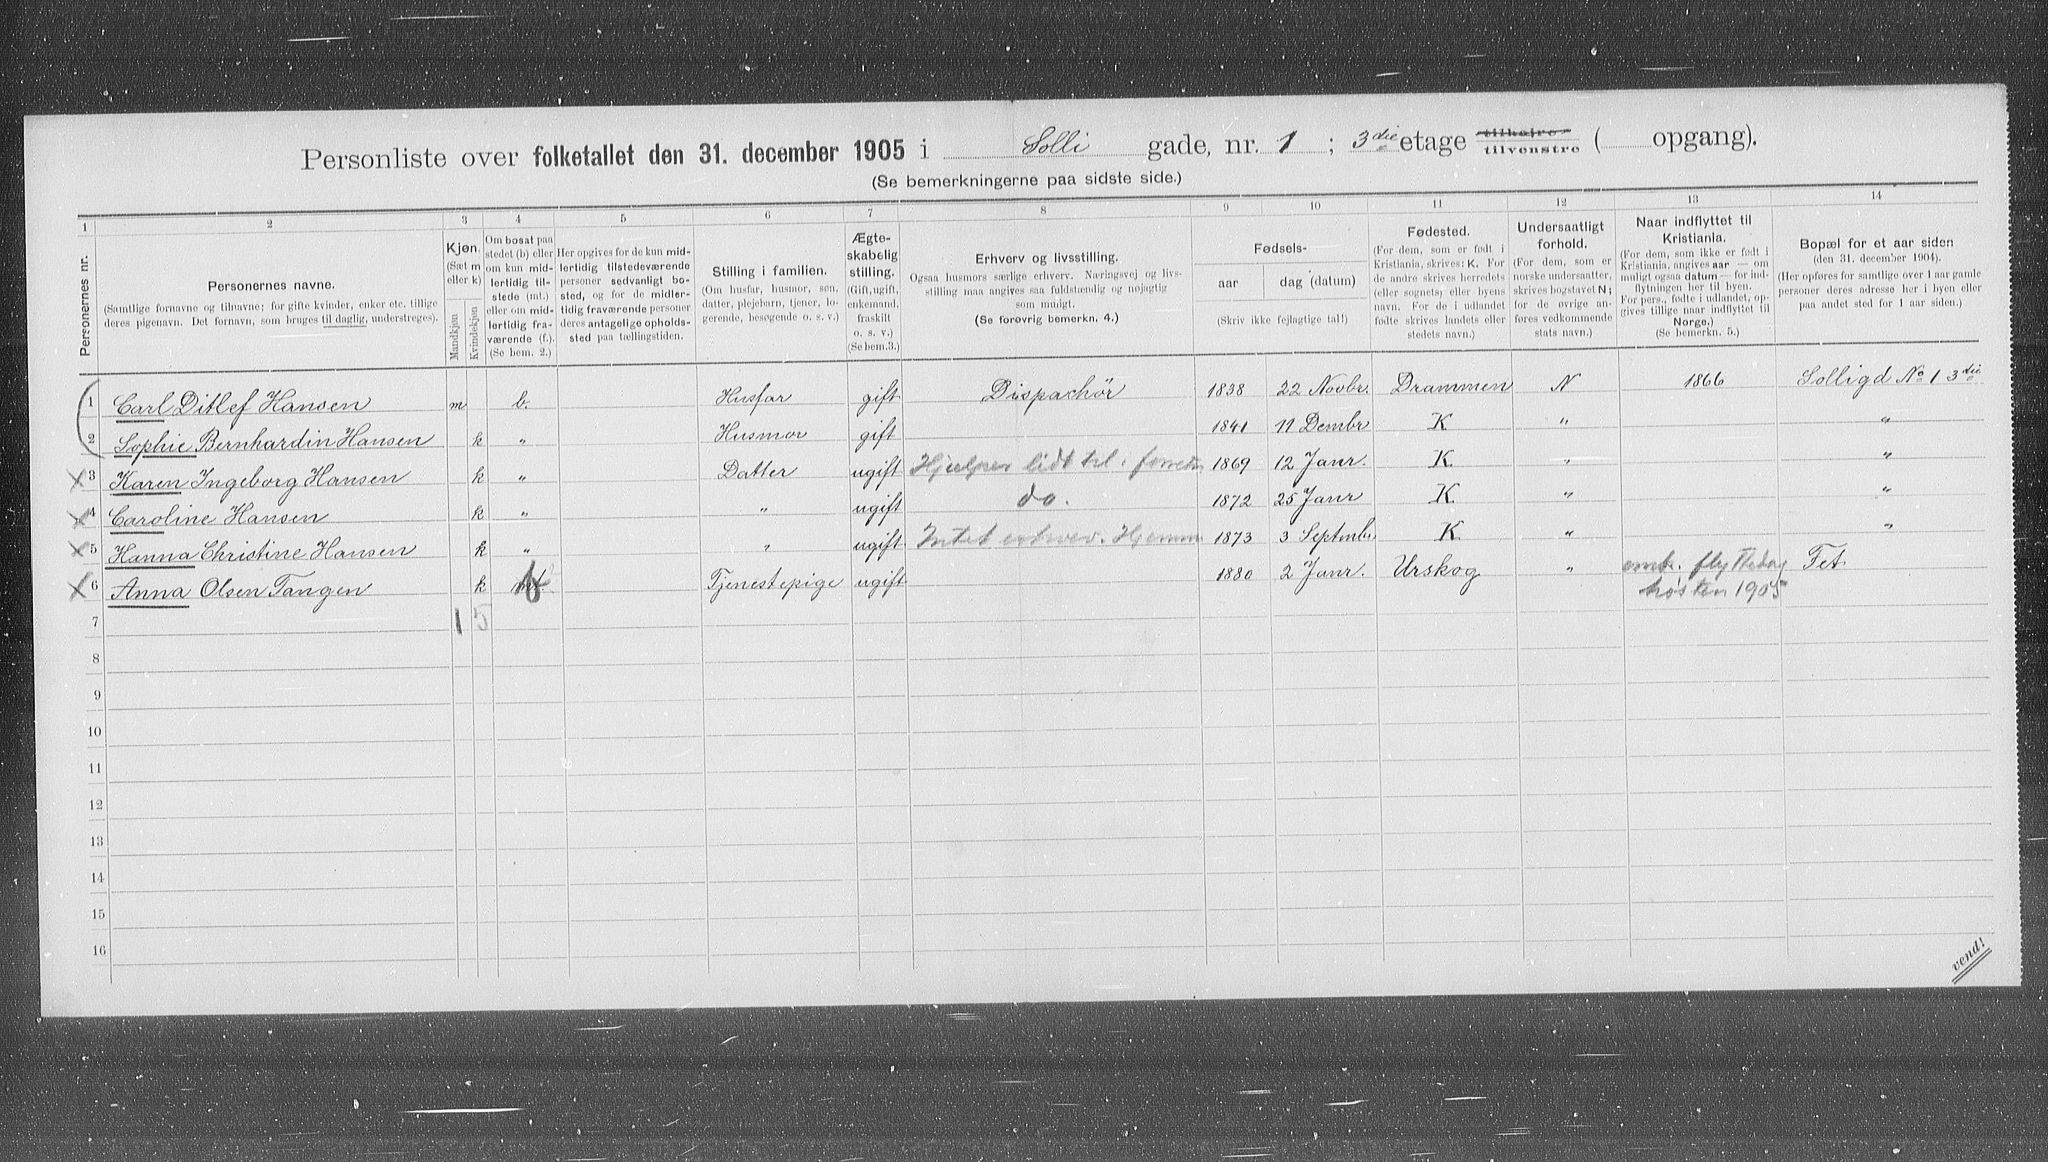 Personliste over folketallet den 31. december 1905 i Solli gade, nr. 1 ; 3die etage tilhøjre tilvenstre ( opgang).
(Se bemerkningerne paa sidste side.)
1 2 3 4 5 6 7 8 9 10 11 12 13 14
Personernes nr.
Personernes navne.
(Samtlige fornavne og tilnavne; for gifte kvinder, enker etc. tillige
deres pigenavn. Det fornavn, som bruges til daglig, understreges).
Kjøn.
(Sæt m
eller k)
Mandkjøn
Kvindekjøn
Om bosat paa
stedet (b) eller
om kun mid-
lertidig til-
stede (mt.)
eller om mid-
lertidig fra-
værende (f.).
(Se bem. 2.)
Her opgives for de kun mid-
lertidig tilstedeværende
personer sedvanlig bo-
sted, og for de midler-
tidig fraværende personer
deres antagelige opholds-
sted paa tællingstiden.
Stilling i familien.
(Om husfar, husmor, søn,
datter, plejebarn, tjener, lo-
gerende, besøgende o. s. v.)
Ægte-
skabelig
stilling.
(Gift, ugift,
enkemand,
fraskilt
o. s. v.)
(Se bem.3.)
Erhverv og livsstilling.
Ogsaa husmors særlige erhverv. Næringsvej og livs-
stilling maa angives saa fuldstændig og nøjagtig
som muligt.
(Se forøvrig bemerkn. 4.)
Fødsels-
aar
dag (datum)
(Skriv ikke fejlagtige tal!)
Fødested.
(For dem, som er født i
Kristiania, skrives: K. For
de andre skrives herredets
(eller sognets) eller byens
navn. For de i udlandet
fødte skrives landets eller
stedets navn.)
Undersaatligt
forhold.
(For dem, som er
norske undersaatter,
skrives bogstavet N;
for de øvrige an-
føres vedkommende
stats navn.)
Naar indflyttet til
Kristiania.
(For dem, som ikke er født i
Kristiania, angives aar — om
muligt ogsaa datum — for ind-
flytningen her til byen.
For pers., fødte i udlandet, op-
gives tillige naar indflyttet til
Norge.)
(Se bemerkn. 5.)
Bopæl for et aar siden
(den 31. december 1904).
(Her opføres for samtlige over 1 aar gamle
personer deres adresse her i byen eller
paa andet sted for 1 aar siden.)
1 Carl Ditlef Hansen m b. Husfar gift Dispachör 1838 22 Novbr. Drammen N 1866 Solligd No 1 3die
2 Sophie Bernhardin Hansen k " Husmor gift 1841 11 Dembr K " "
3 Karen Ingeborg Hansen k " Datter ugift Hjælper lidt til i 1869 12 Janr. K. " "
4 Caroline Hansen k " " ugift do. 1872 25 Janr K " "
5 Hanna Christine Hansen k " " ugift Intet erhverv. Hjemme 1873 3 Septmbr K " "
6 Anna Olsen Tangen k Tjenestepige ugift 1880 2 Janr. Urskog " omtr. flyttedag Fet.
høsten 1905
7 1 5
8
9
10
11
12
13
14
15
16
vend!